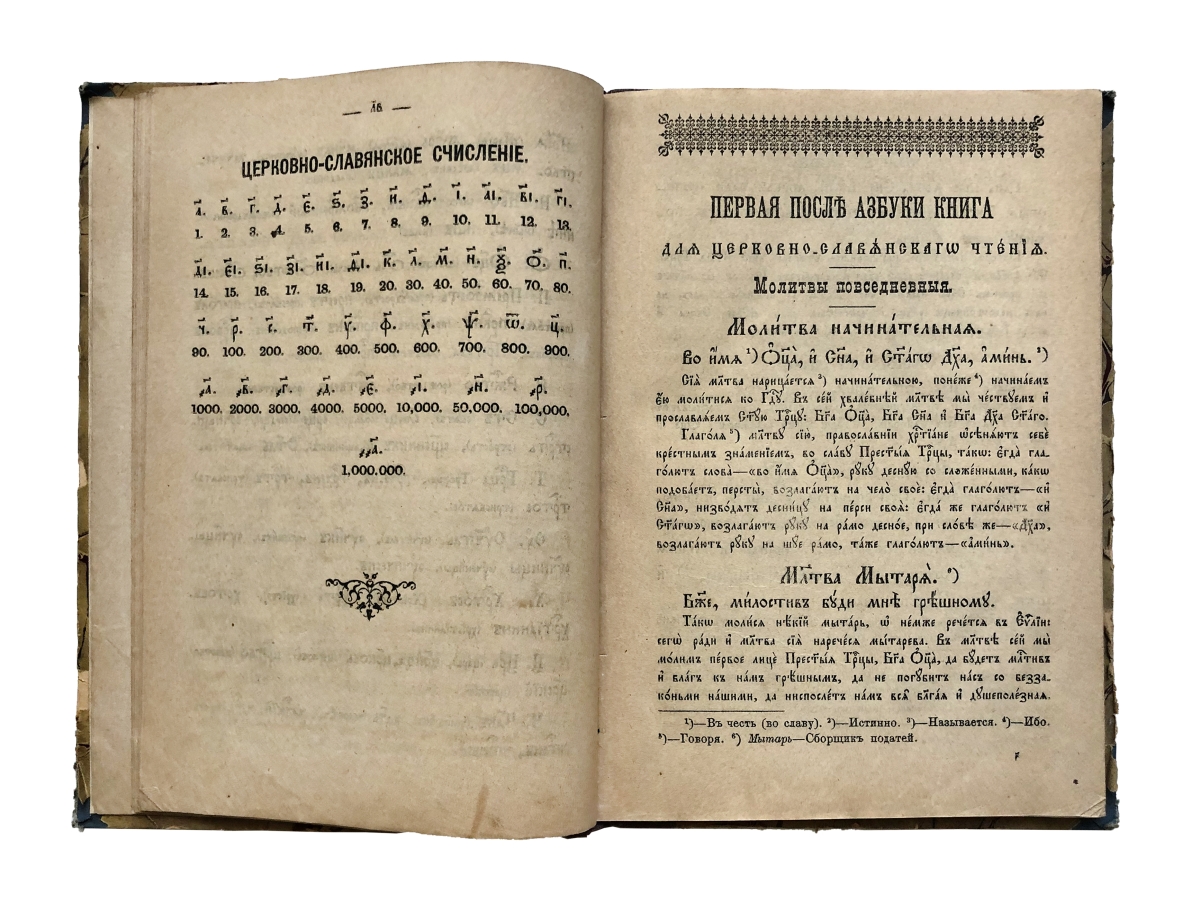 — л҃в —
ЦЕРКОВНО-СЛАВЯНСКОЕ СЧИСЛЕНІЕ.
а҃. в҃. г҃. д҃. є҃. ѕ҃. з҃. и҃. ѳ҃. і҃. а҃і. в҃і. г҃і.
1. 2. 3. 4. 5. 6. 7. 8. 9. 10. 11. 12. 13.
д҃і. є҃і. ѕ҃і. з҃і. и҃і. ѳ҃і. к҃. л҃. м҃. н҃. ѯ҃. ѻ҃. п҃.
14. 15. 16. 17. 18. 19. 20. 30. 40. 50. 60. 70. 80.
ч҃. р҃. с҃. т҃. у҃. ф҃. х҃. ѱ҃. ѿ҃. ц҃.
90. 100. 200. 300. 400. 500. 600. 700. 800. 900.
҂а҃. ҂в҃. ҂г҃. ҂д҃. ҂є҃. ҂і҃. ҂н҃. ҂р҃.
1000. 2000. 3000. 4000. 5000. 10,000. 50,000. 100,000.
҂҂а҃.
1,000.000.
ПЕРВАЯ ПОСЛѢ АЗБУКИ КНИГА
для церковно-славѧ́нскагѡ чте́нїѧ.
Молитвы повседневныя.
Моли́тва начина́тельнаѧ.
Во и҆́мѧ ¹) Ѻ҆ц҃а̀, и҆ Сн҃а, и҆ Ст҃а́гѡ Дх҃а, а҆ми́нь. ²)
Сїѧ̀ мл҃тва нарица́етсѧ ³) начина́тельною, поне́же ⁴) начина́емъ
є҆́ю моли́тисѧ ко Гд҇у. Въ се́й хвале́бнѣй мл҃твѣ мы̀ че́ствуемъ и҆
прославлѧ́емъ Ст҃у́ю Тр҇цу: Бг҃а Ѻ҆ц҃а̀, Бг҃а Сн҃а и҆ Бг҃а Дх҃а Ст҃а́го.
Глаго́лѧ ⁵) мл҃тву сїю̀, правосла́внїи хр҇тїа́не ѡ҆сѣнѧ́ютъ себѐ
кре́стнымъ зна́менїемъ, во сла́ву Прест҃ы́ѧ Тр҇цы, та́кѡ: є҆гда̀ гла-
го́лютъ слова̀—«во и҆́мѧ Ѻ҆ц҃а̀», ру́ку десну́ю со сложе́нными, ка́кѡ
подоба́етъ, персты̀, возлага́ютъ на чело̀ своѐ: є҆гда̀ глаго́лютъ—«и҆
Сн҃а», низво́дѧтъ десни́цу на пе́рси своѧ̀: є҆гда́ же глаго́лютъ «и҆
Ст҃а́гѡ», возлага́ютъ ру́ку на ра́мо десно́е, при сло́вѣ же—«Дх҃а»,
возлага́ютъ ру́ку на шуе ра́мо, та́же глаго́лютъ—«а҆ми́нь».
Мл҃тва Мытарѧ̀. ⁶)
Бж҃е, ми́лостивъ бу́ди мнѣ̀ грѣ́шному.
Та́кѡ моли́сѧ нѣ́кїй мыта́рь, ѡ҆ не́мже рече́тсѧ въ Є҆ѵⷢ҇лїи:
сегѡ̀ ра́ди и҆ мл҃тва сїѧ̀ нарече́сѧ мы́тарева. Въ мл҃твѣ се́й мы̀
мо́лимъ пе́рвое лицѐ Прест҃ы́ѧ Тр҇цы, Бг҃а Ѻ҆ц҃а̀, да бу́детъ мл҇тивъ
и҆ бла́гъ къ на́мъ грѣ́шнымъ, да не погуби́тъ на́съ со безза-
ко́ньми на́шими, да ниспосле́тъ на́мъ всѧ̑ блг҃а́ѧ и҆ душеполє́знаѧ.
¹)—Въ честь (во славу). ²)—Истинно. ³)—Называется. ⁴)—Ибо.
⁵)—Говоря. ⁶) Мытарь—Сборщикъ податей.